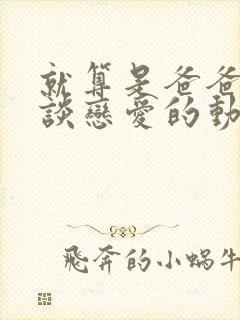 就算是爸爸
談戀愛的動
飛奔的小蝸牛